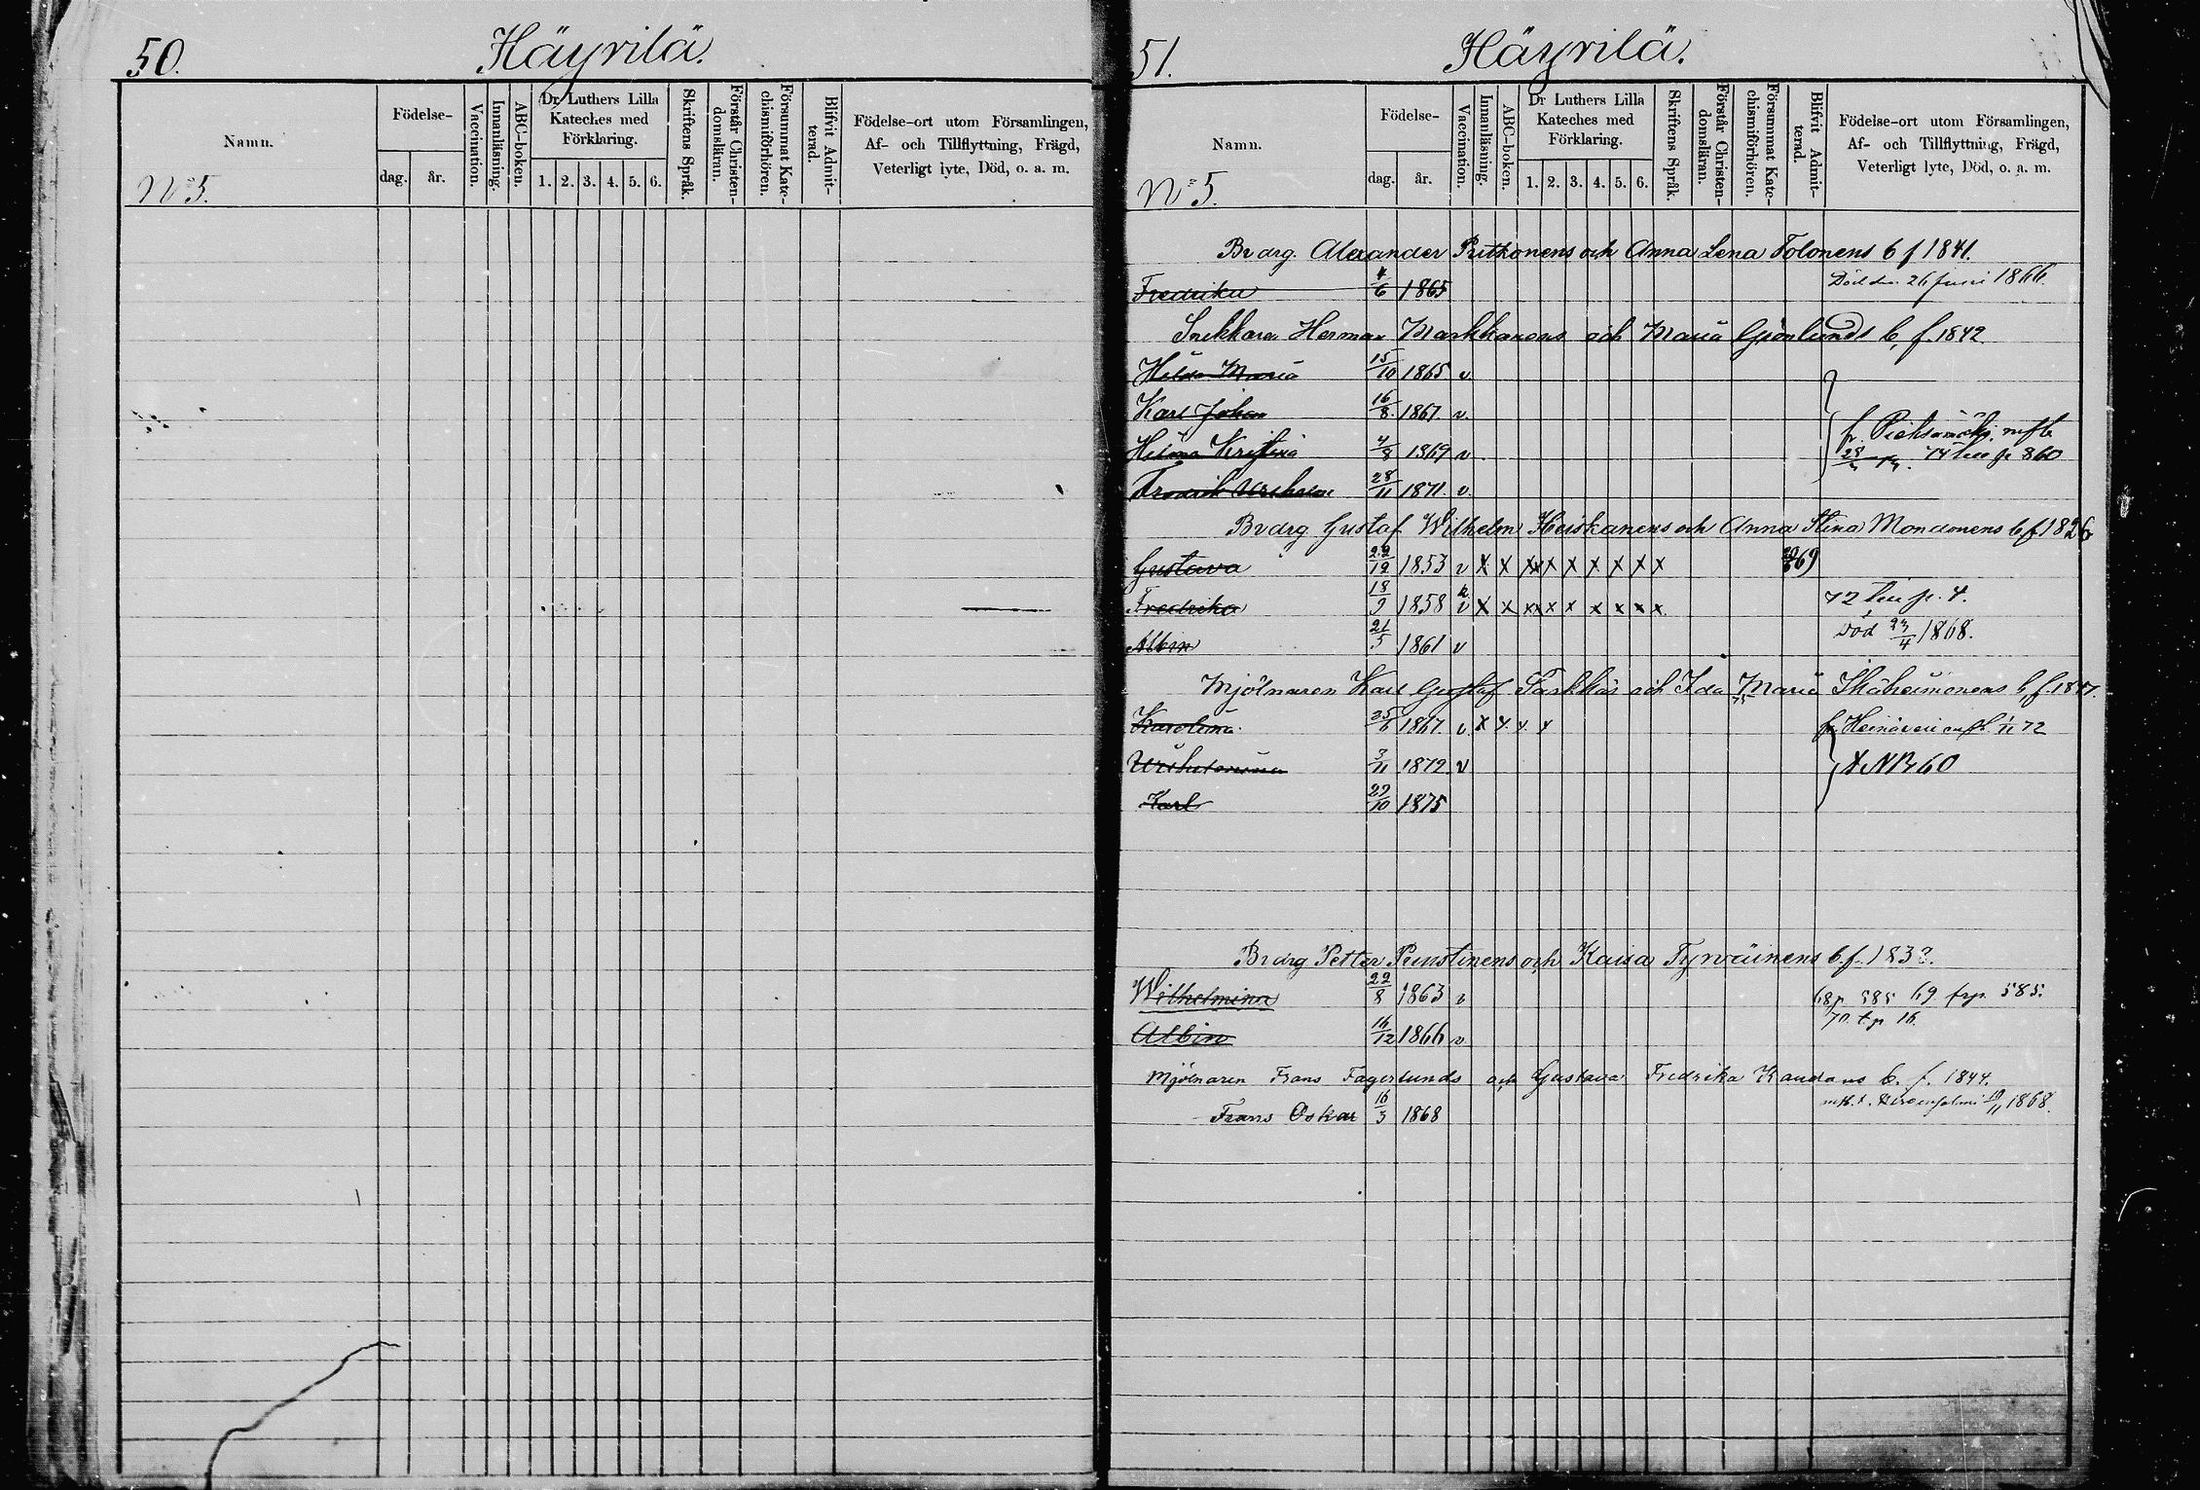 50.
Häyrilä.
Namn.
Födelse-
dag.
år.
Vaccination.
Innanläsning.
ABC-boken.
Dr Luthers Lilla
Kateches med
Förklaring.
1. 2. 3. 4. 5. 6.
Skriftens Språk.
Förstår Christen-
domsläran.
Försummat Kate-
chismiförhören.
Blifvit Admit-
terad.
Födelse-ort utom Församlingen,
Af- och Tillflyttning, Frägd,
Veterligt lyte, Död, o. a. m.
No 5.
51.
Häyrilä.
Namn.
Födelse-
dag.
år.
Vaccination.
Innanläsning.
ABC-boken.
Dr Luthers Lilla
Kateches med
Förklaring.
1. 2. 3. 4. 5. 6.
Skriftens Språk.
Förstår Christen-
domsläran.
Försummat Kate-
chismiförhören.
Blifvit Admit-
terad.
Födelse-ort utom Församlingen,
Af- och Tillflyttning, Frägd,
Veterligt lyte, Död, o. a. m.
No 5.
Bvarg. Alexander Pitkonens och Anna Lena Tolonens b f 1841.
Fredrika 4/6 1865 Död den 26 Juni 1866.
Snikkara Herman Markkanens och Maria Grönlunds b. f. 1842
Hilda Maria 15/10 1865 v
Karl Johan 16/8 1867 v.
Hilma Kristina 4/8 1869 v fr. Pieksämäki, mfb
28/11 1871. v. 860
Bvarg Gustaf Wilhelm Heiskanens och Anna Stina Mononens b f 1826
Gustava 22/12 1853 v x x x x x x x x x x 69
Fredrika 18/9 1858 v x x x x x x x x x x 72 p. 4.
Albin 21/5 1861 v Död 23/4 1868.
Mjölnaren Karl Gustaf Tarkkas och Ida Maria b. f. 1847.
Karolina 25/6 1867. v. x x. x. x fr. mfb 1/11 72
3/11 1872 v
Karl 29/10 1875
Bvarg Petter Puustinens och Kaisa Tyrväinens b. f. 1832.
Wilhelmina 22/8 1863 v 68 p. 585 69 frp. 585.
70. t. p 16.
Albin 16/12 1866 v
Mjölnaren Frans Fagerlunds och Gustava Fredrika b. f. 1844.
Frans Oskar 16/3 1868 mfb. t. 1868.